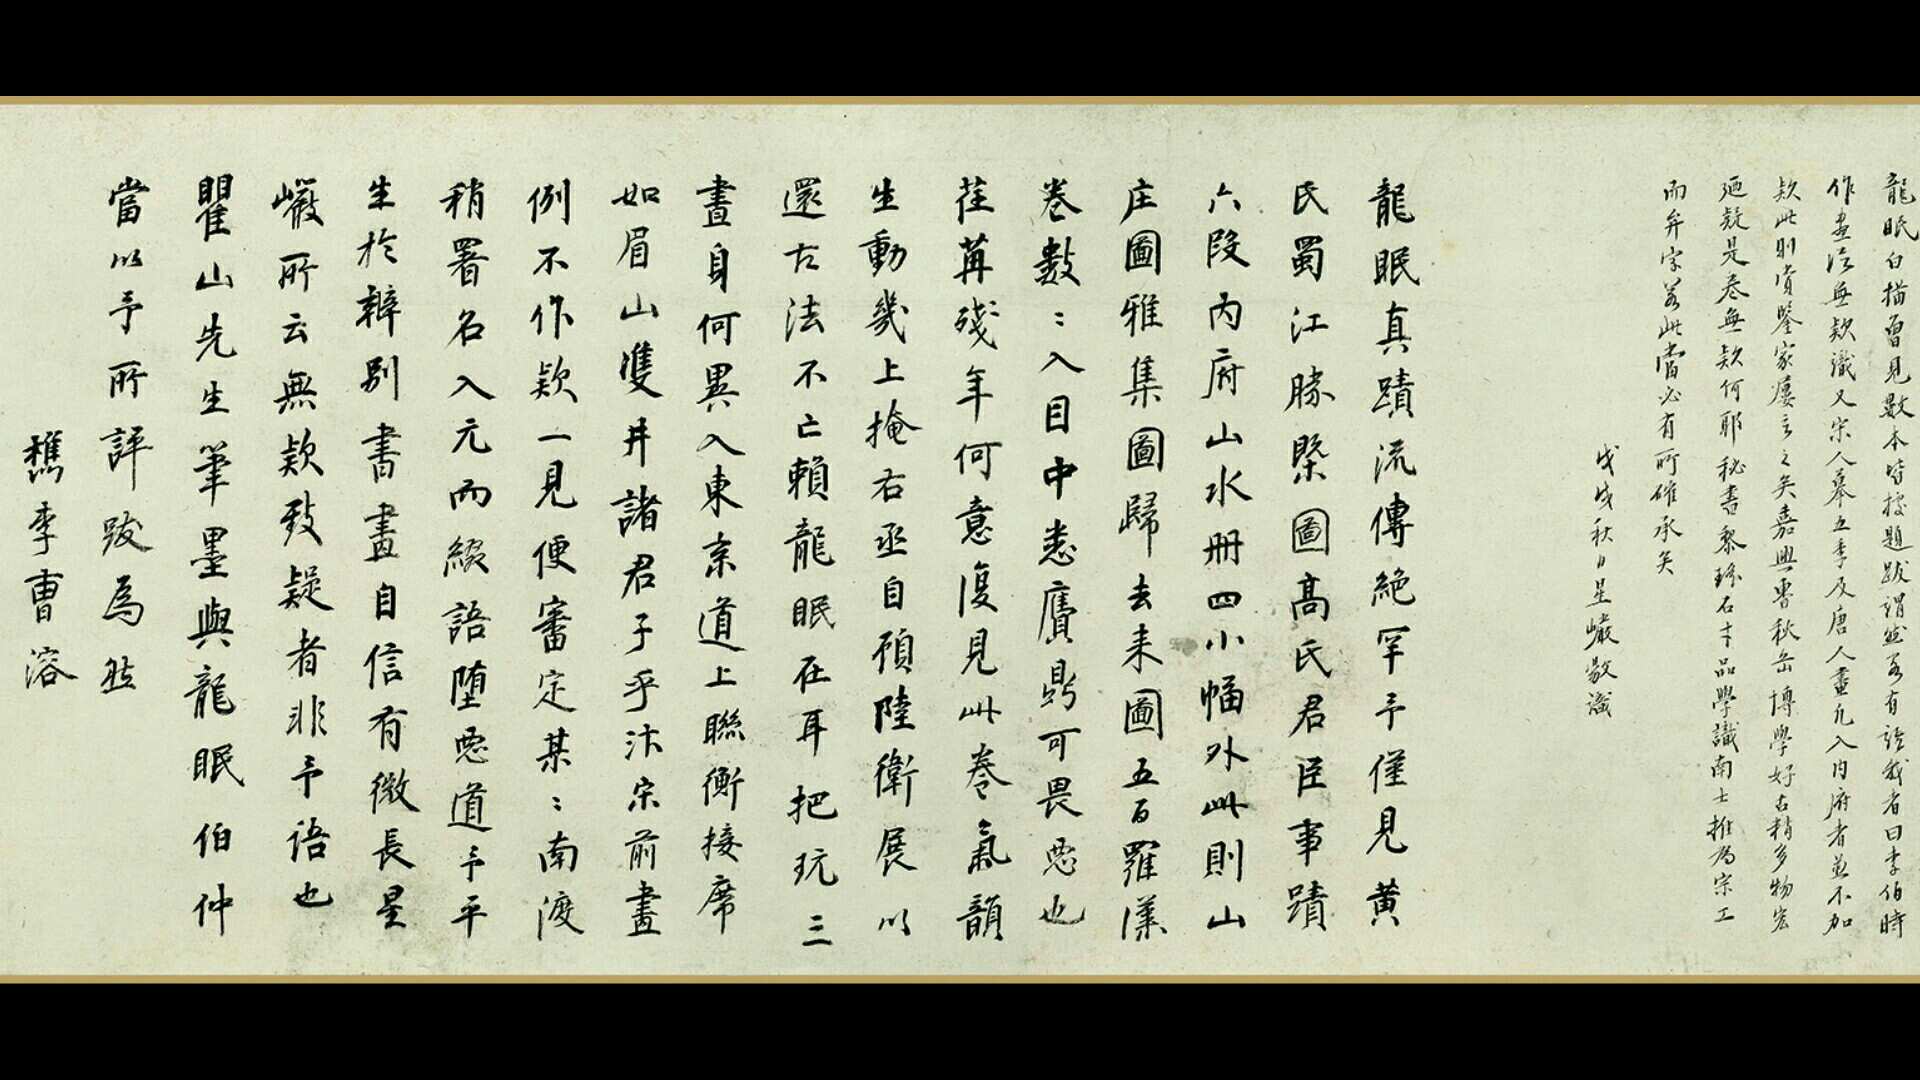 龍眠白描曾見數本皆按題跋謂然若有詒我者曰李伯時
作畫法無款識又宋人摹五季及唐人畫凡入內府者並不加
款此則賞鑒家屢言之矣嘉興曹秋岳博學好古精多物宏
廼疑是卷無款何耶秘書黎瑤石才品學識南士推為宗工
而弁宗若此當必有所確承矣
戊戌秋日星巖敬識
龍眠真蹟流傳絕罕予僅見黃
氏蜀江勝槩圖高氏君臣事蹟
六段內府山水冊四小幅外此則山
庄圖雅集圖歸去来圖五百羅漢
卷數〻入目中悉贋鼎可畏惡也
荏苒殘年何意復見此卷氣韻
生動幾上掩右丞自顧陸衛展以
還古法不亡賴龍眠在耳把玩三
晝身何異入東京道上聯衡接席
如眉山雙井諸君子乎汴宋前畫
例不作款一見便審定某〻南渡
稍署名入元而綴語堕惡道予平
生於辨別書畫自信有微長星
巖所云無款致疑者非予語也
瞿山先生筆墨與龍眠伯仲
當以予所評跋為然
檇李曹溶